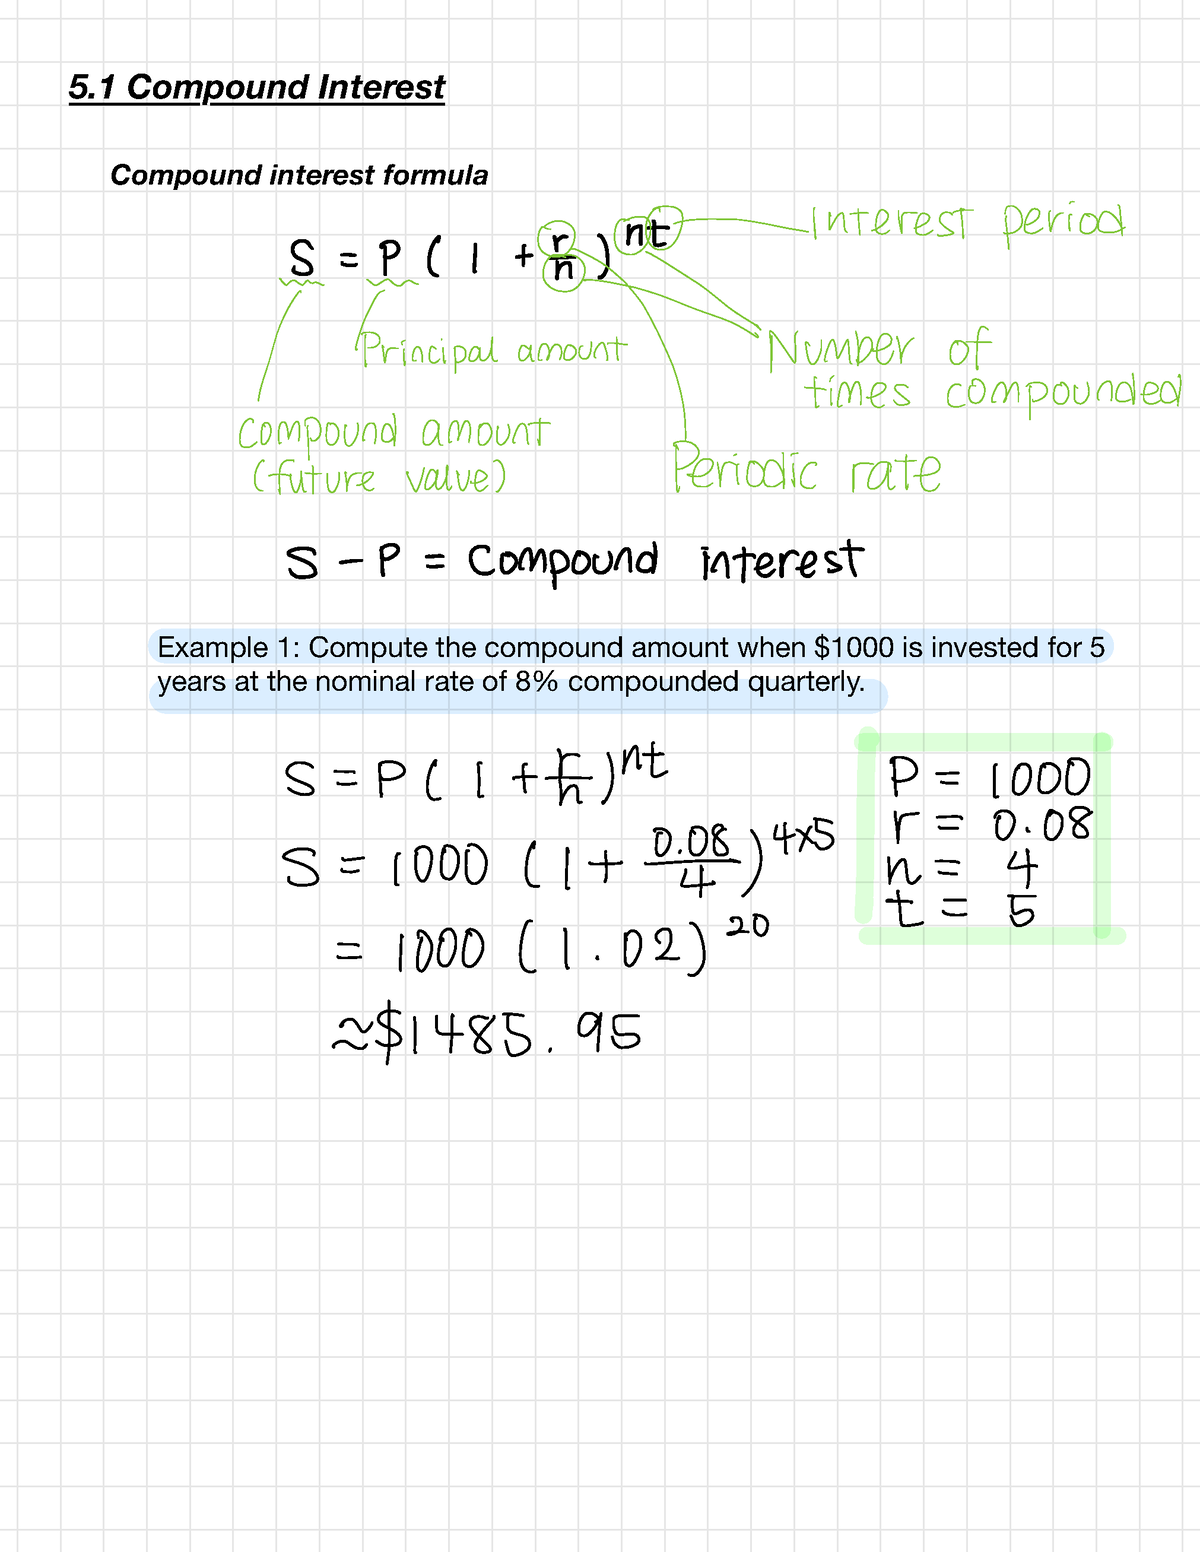 5.1 Compound Interest
Compound interest formula
S = P ( 1 + r/n )^nt
Interest period
Principal amount
Number of
times compounded
Compound amount
(future value)
Periodic rate
S - P = Compound interest
Example 1: Compute the compound amount when $1000 is invested for 5
years at the nominal rate of 8% compounded quarterly.
S = P ( 1 + r/n )^nt
S = 1000 ( 1 + 0.08/4 )^4x5
= 1000 ( 1.02 )^20
≈ $1485.95
P = 1000
r = 0.08
n = 4
t = 5